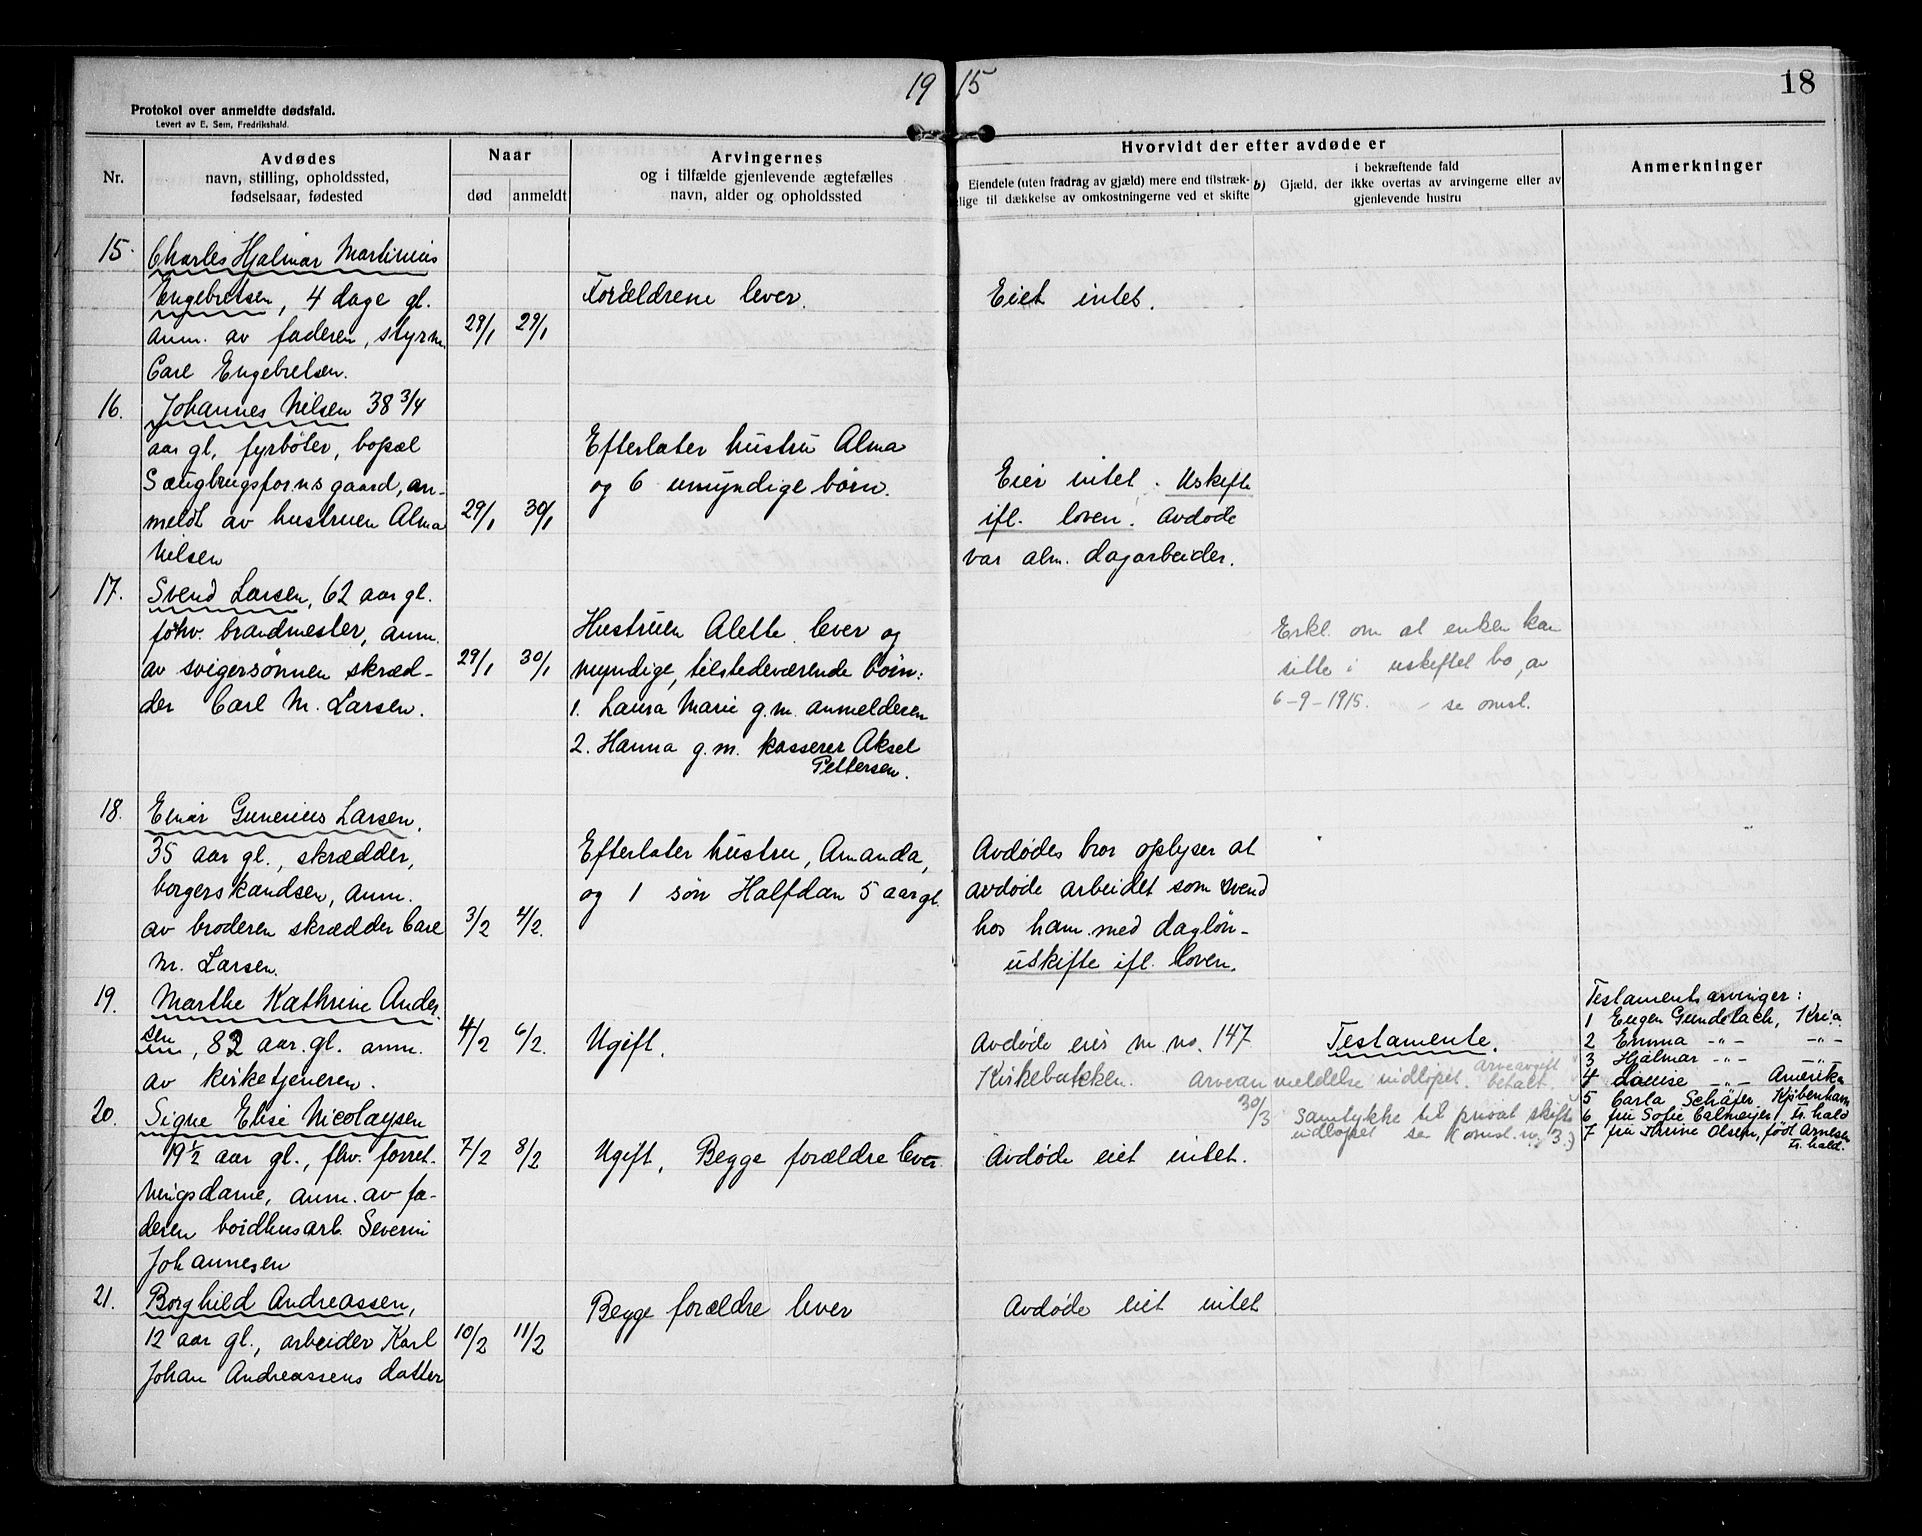 19 15
18
Protokol over anmeldte dødsfald.
Levert av E. Sem, Fredrikshald.
Nr.
Avdødes
navn, stilling, opholdssted,
fødselsaar, fødested
Naar
død
anmeldt
Arvingernes
og i tilfælde gjenlevende ægtefælles
navn, alder og opholdssted
Hvorvidt der efter avdøde er
Eiendele (uten fradrag av gjæld) mere end tilstræk-
lige til dækkelse av omkostningerne ved et skifte
b)
i bekræftende fald
Gjæld, der ikke overtas av arvingerne eller av
gjenlevende hustru
Anmerkninger
15.
Charles Hjalmar Martinius
Engebretsen, 4 dage gl.
anm. av faderen, styrm.
Carl Engebretsen.
29/1
29/1
Forældrene lever.
Eiet intet.
16.
Johannes Nilsen 38 3/4
aar gl, fyrbøter, bopæl
Saugbrugsfor.ns gaard, an-
meldt av hustruen Alma
Nilsen
29/1
30/1
Efterlater hustru Alma
og 6 umyndige børn.
Eier intet. Uskifte
ifl. loven. Avdøde
var alm. dagarbeider.
17.
Svend Larsen, 62 aar gl.
fhv. brandmester, anm.
av svigersønnen skræd-
der Carl M. Larsen.
29/1
30/1
Hustruen Alette lever og
myndige, tilstedeværende børn:
1. Laura Marie g.m. anmelderen
2. Hanna g.m. kasserer Aksel
Pettersen.
Erkl. om at enken kan
sitte i uskiftet bo, av
6-9-1915. - se omsl.
18.
Einar Gunerius Larsen,
35 aar gl., skrædder,
borgerskandsen, anm.
av broderen skrædder Carl
M. Larsen.
3/2
4/2.
Efterlater hustru, Amanda,
og 1 søn Halfdan 5 aar gl.
Avdødes bror oplyser at
avdøde arbeidet som svend
hos ham med dagløn -
uskifte ifl. loven.
19.
Marthe Kathrine Ander-
sen, 82 aar gl. anm.
av kirketjeneren.
4/2
6/2.
Ugift.
Avdøde eier m. no. 147
Kirkebakken.
Testamente.
Arveanmeldelse indløpet. Arveavgift
betalt.
30/3 Samtykke til privat skifte
indløpet se (omsl. n. 3.)
Testamentsarvinger:
1 Eugen Gundelach, Kr.ia.
2 Emma -"- -"-
3 Hjalmar -"- -"-
4 Louise -"- Amerika
5 Carla Schäfer Kjøbenhavn
6 fru Sofie Calmeijer, Fr.hald
7 fru Thrine Olsen, født Arnesen
Fr.hald.
20.
Signe Elise Nicolaysen
19 1/2 aar gl., fhv. forret-
ningsdame, anm. av fa-
deren bordhusarb. Severin
Johannesen
7/2
8/2
Ugift, Begge forældre lever.
Avdøde eiet intet.
21.
Borghild Andreassen,
12 aar gl., arbeider Karl
Johan Andreassens datter
10/2
11/2
Begge forældre lever
Avdøde eiet intet